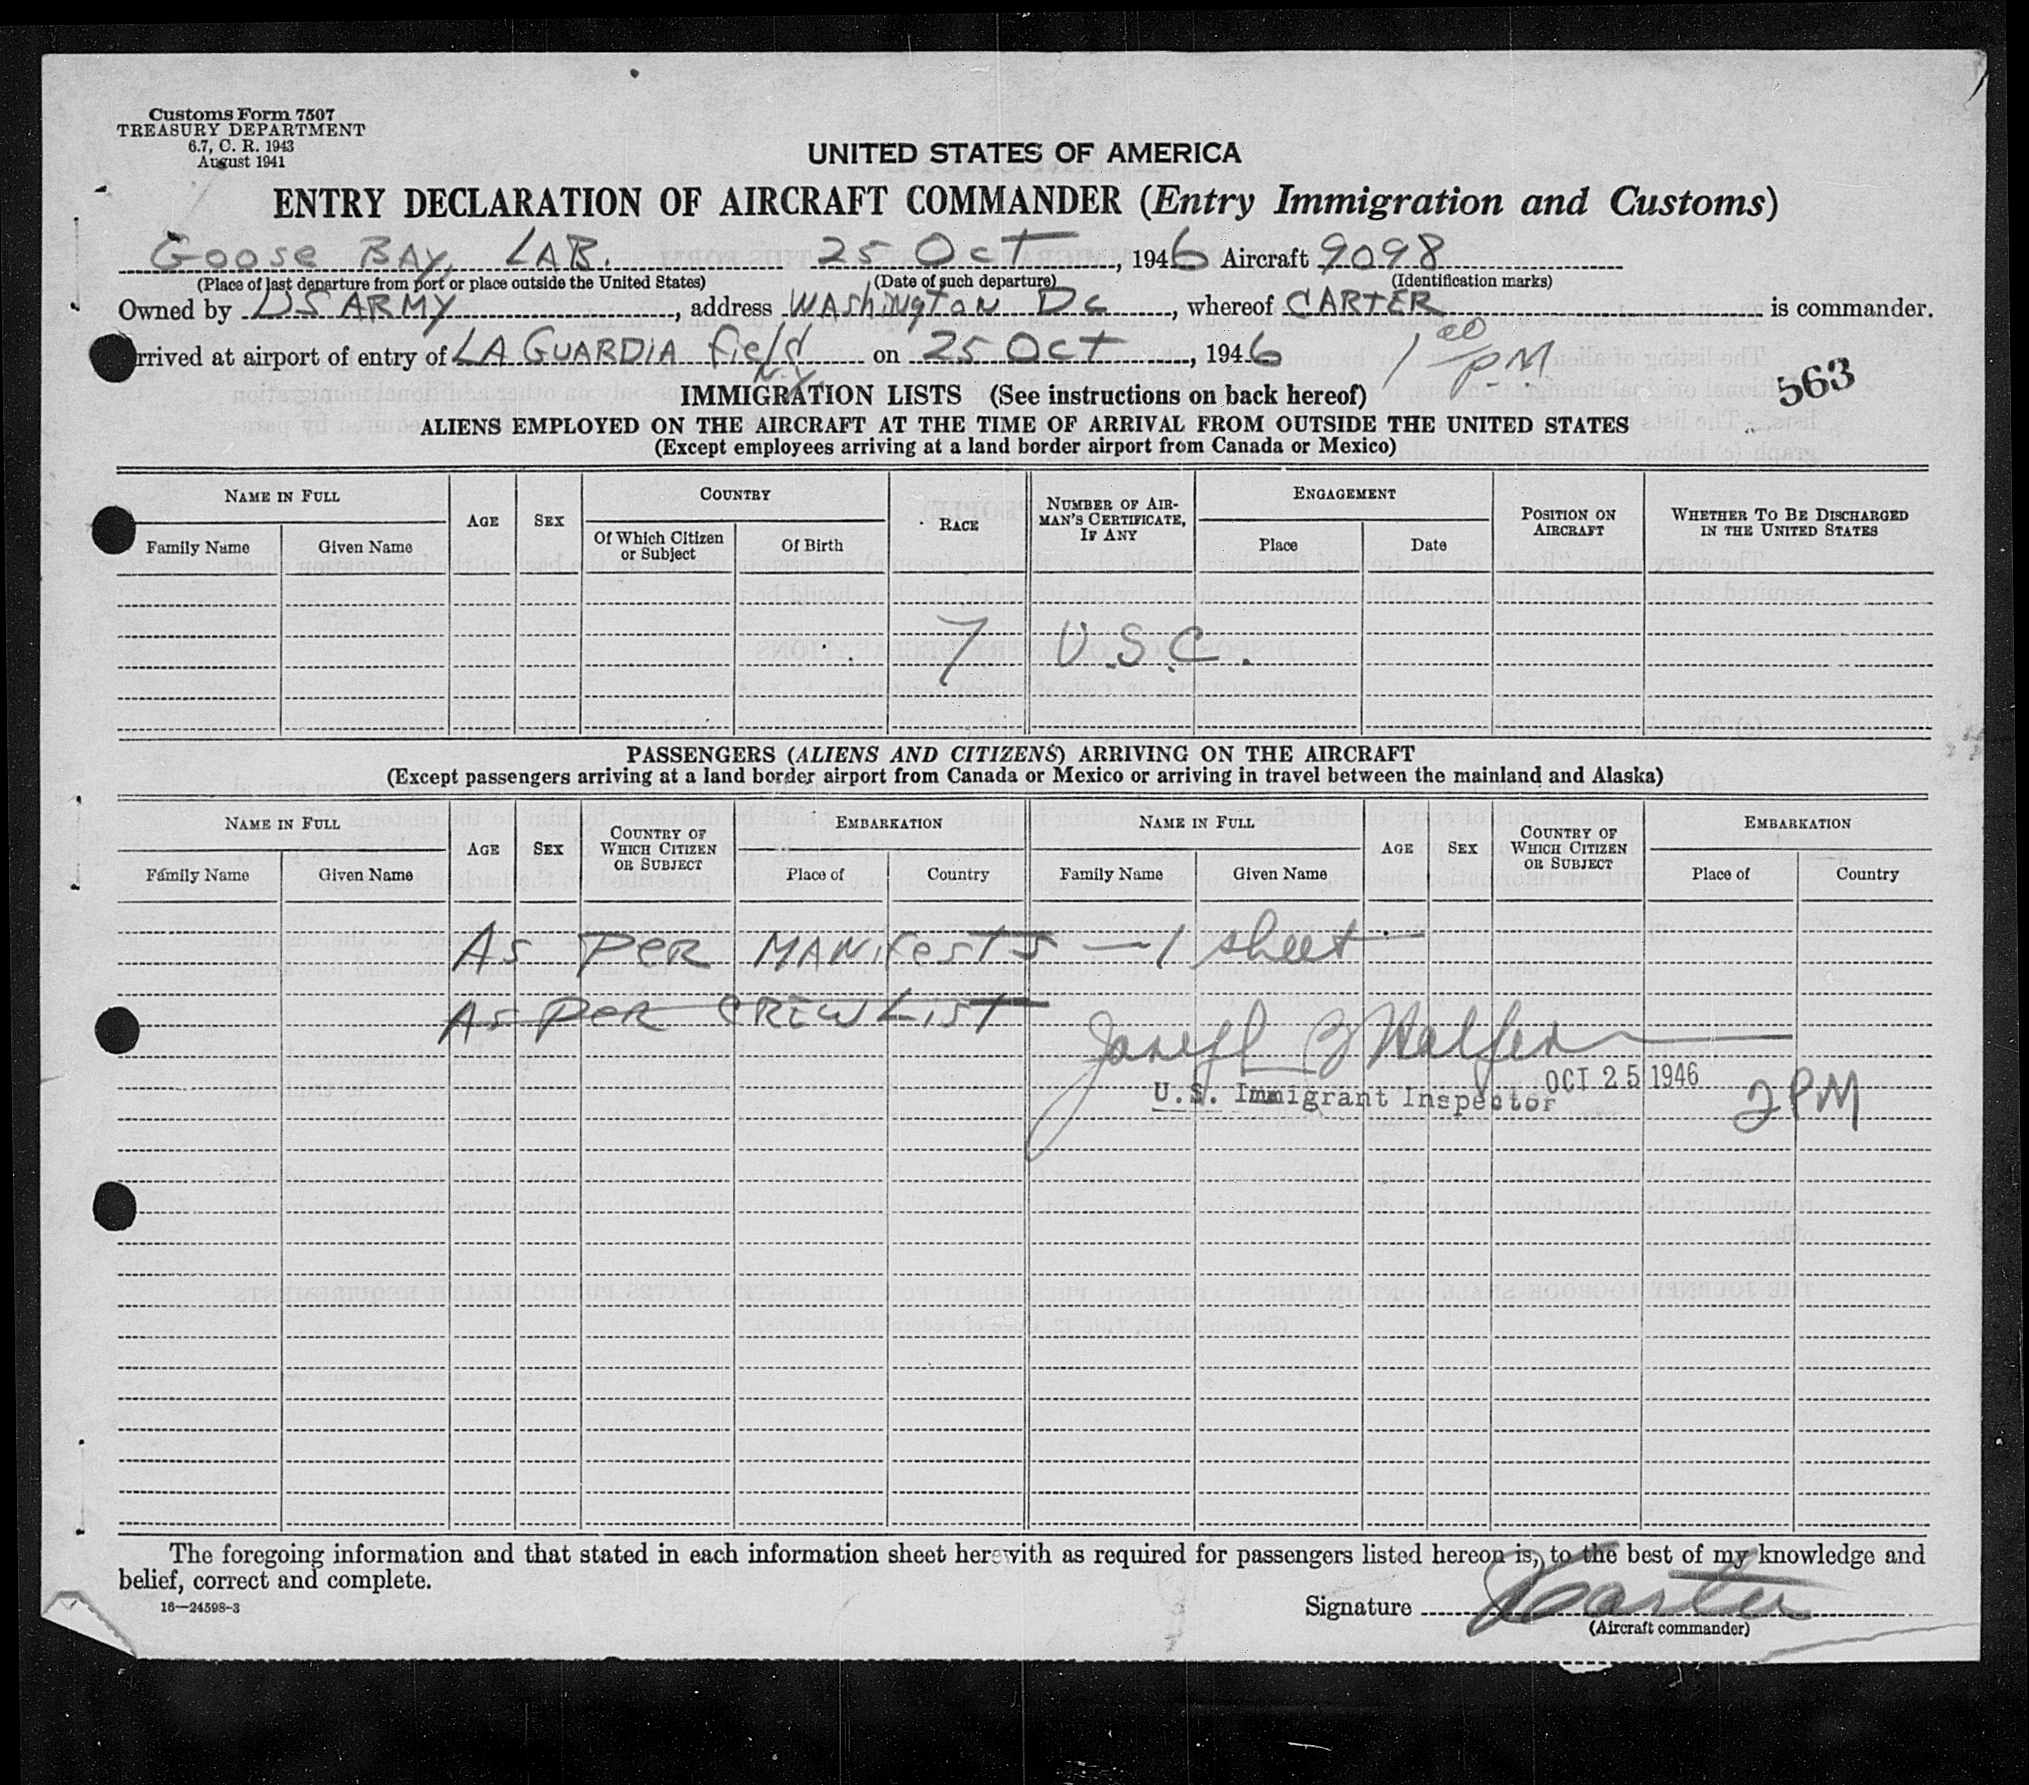 Customs Form 7507
TREASURY DEPARTMENT
6.7, C. R. 1943
August 1941
UNITED STATES OF AMERICA
ENTRY DECLARATION OF AIRCRAFT COMMANDER (Entry Immigration and Customs)
GOOSE BAY, LAB. 25 Oct, 1946 Aircraft 9098
(Place of last departure from port or place outside the United States) (Date of such departure) (Identification marks)
Owned by US ARMY, address WAShiNgtoN DC, whereof CARTER is commander.
rrived at airport of entry of LA GUARDIA field on 25 Oct, 1946 1 00 PM
N.Y.
563
IMMIGRATION LISTS (See instructions on back hereof)
ALIENS EMPLOYED ON THE AIRCRAFT AT THE TIME OF ARRIVAL FROM OUTSIDE THE UNITED STATES
(Except employees arriving at a land border airport from Canada or Mexico)
NAME IN FULL AGE SEX COUNTRY RACE NUMBER OF AIRMAN'S CERTIFICATE, IF ANY ENGAGEMENT POSITION ON AIRCRAFT WHETHER TO BE DISCHARGED IN THE UNITED STATES
Family Name Given Name Of Which Citizen or Subject Of Birth Place Date
7 U.S.C.
PASSENGERS (ALIENS AND CITIZENS) ARRIVING ON THE AIRCRAFT
(Except passengers arriving at a land border airport from Canada or Mexico or arriving in travel between the mainland and Alaska)
NAME IN FULL AGE SEX COUNTRY OF WHICH CITIZEN OR SUBJECT EMBARKATION NAME IN FULL AGE SEX COUNTRY OF WHICH CITIZEN OR SUBJECT EMBARKATION
Family Name Given Name Place of Country Family Name Given Name Place of Country
As PER MANifests — 1 sheet
As PER CREW LIST
OCT 25 1946
U.S. Immigrant Inspector 2 PM
The foregoing information and that stated in each information sheet herewith as required for passengers listed hereon is, to the best of my knowledge and
belief, correct and complete.
16—24598-3
Signature Carter
(Aircraft commander)